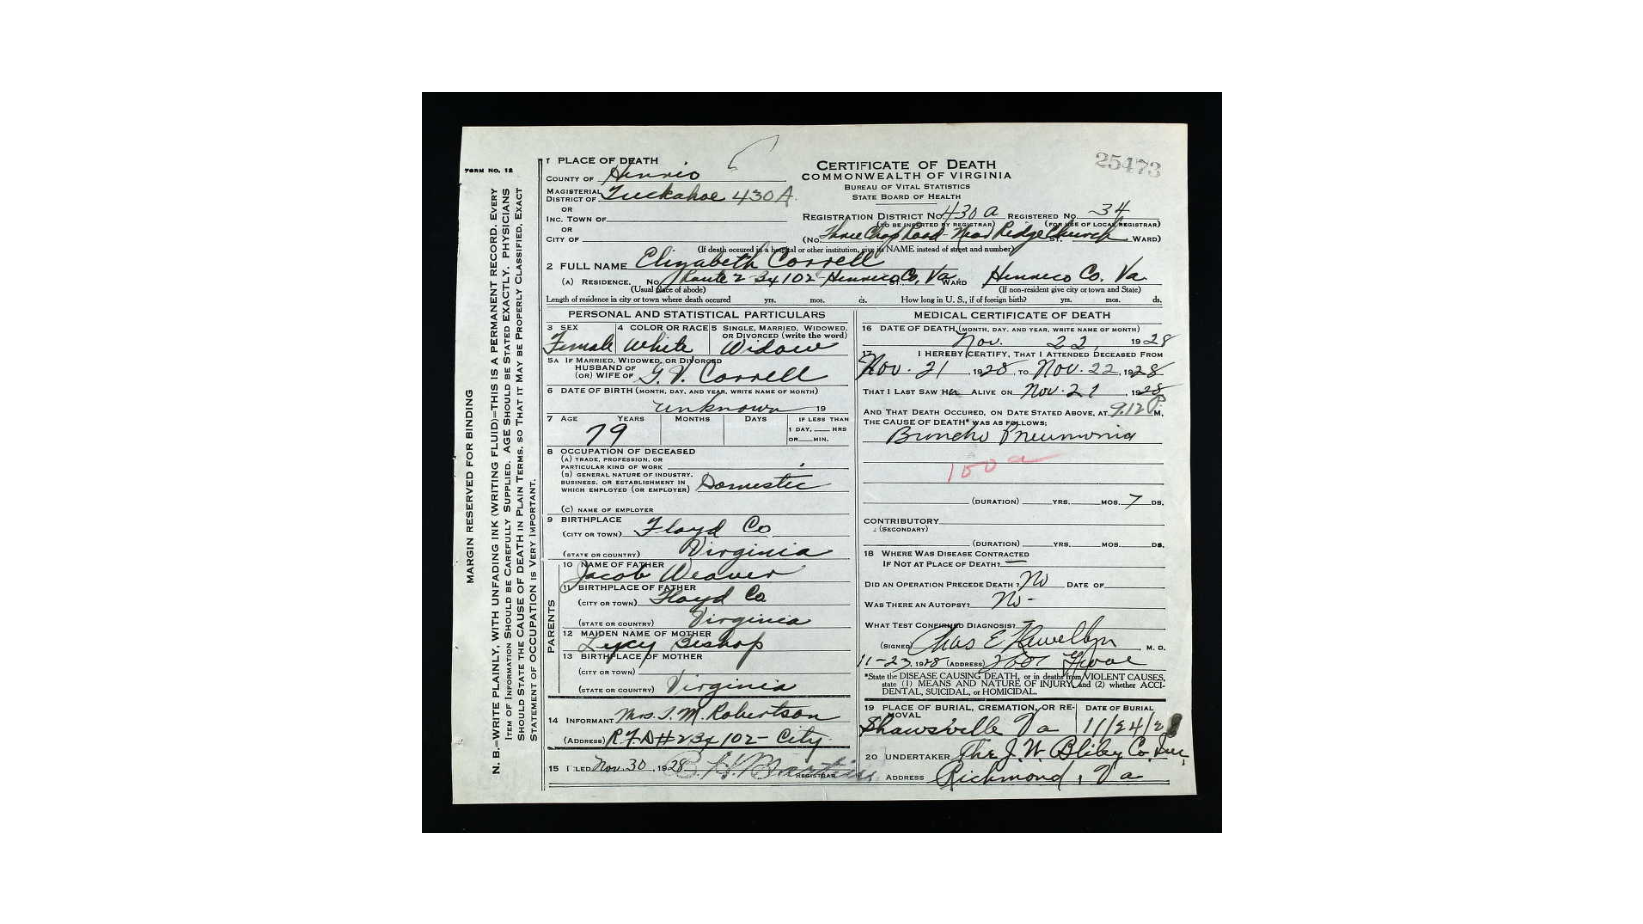 FORM NO. 12
MARGIN RESERVED FOR BINDING
N. B.—WRITE PLAINLY, WITH UNFADING INK (WRITING FLUID)—THIS IS A PERMANENT RECORD. EVERY
ITEM OF INFORMATION SHOULD BE CAREFULLY SUPPLIED. AGE SHOULD BE STATED EXACTLY. PHYSICIANS
SHOULD STATE THE CAUSE OF DEATH IN PLAIN TERMS, SO THAT IT MAY BE PROPERLY CLASSIFIED. EXACT
STATEMENT OF OCCUPATION IS VERY IMPORTANT.
1 PLACE OF DEATH
COUNTY OF Henrico
MAGISTERIAL DISTRICT OF Tuckahoe 430A
OR
INC. TOWN OF
OR
CITY OF
CERTIFICATE OF DEATH
COMMONWEALTH OF VIRGINIA
BUREAU OF VITAL STATISTICS
STATE BOARD OF HEALTH
25473
REGISTRATION DISTRICT NO. 430a REGISTERED NO. 34
(TO BE INSERTED BY REGISTRAR) (FOR USE OF LOCAL REGISTRAR)
(No. Three Chop Road - Near Ridge Church ST. WARD)
(If death occured in a hospital or other institution, give its NAME instead of street and number)
2 FULL NAME Elizabeth Correll
(A) RESIDENCE. No. Route 2 Bx 102 - Henrico Co, Va ST. WARD Henrico Co. Va
(Usual place of abode) (If non-resident give city or town and State)
Length of residence in city or town where death occured yrs. mos. ds. How long in U. S., if of foreign birth? yrs. mos. ds.
PERSONAL AND STATISTICAL PARTICULARS
3 SEX Female
4 COLOR OR RACE White
5 SINGLE, MARRIED, WIDOWED, OR DIVORCED (write the word) Widow
5A IF MARRIED, WIDOWED, OR DIVORCED
HUSBAND OF
(OR) WIFE OF G. V. Correll
6 DATE OF BIRTH (MONTH, DAY, AND YEAR, WRITE NAME OF MONTH)
unknown 19
7 AGE YEARS MONTHS DAYS IF LESS THAN
79 1 DAY, HRS
OR MIN.
8 OCCUPATION OF DECEASED
(A) TRADE, PROFESSION, OR
PARTICULAR KIND OF WORK
(B) GENERAL NATURE OF INDUSTRY,
BUSINESS, OR ESTABLISHMENT IN
WHICH EMPLOYED (OR EMPLOYER) Domestic
(C) NAME OF EMPLOYER
9 BIRTHPLACE
(CITY OR TOWN) Floyd Co
(STATE OR COUNTRY) Virginia
PARENTS
10 NAME OF FATHER
Jacob Weaver
11 BIRTHPLACE OF FATHER
(CITY OR TOWN) Floyd Co
(STATE OR COUNTRY) Virginia
12 MAIDEN NAME OF MOTHER
Lucy Bishop
13 BIRTHPLACE OF MOTHER
(CITY OR TOWN)
(STATE OR COUNTRY) Virginia
14 INFORMANT Mrs. J. M. Robertson
(ADDRESS) RFD #2 Bx 102 - City
15 FILED Nov 30, 1928 REGISTRAR
MEDICAL CERTIFICATE OF DEATH
16 DATE OF DEATH (MONTH, DAY, AND YEAR, WRITE NAME OF MONTH)
Nov. 22, 1928
17 I HEREBY CERTIFY, THAT I ATTENDED DECEASED FROM
Nov. 21, 1928, TO Nov. 22, 1928
THAT I LAST SAW HER ALIVE ON Nov. 21 1928
AND THAT DEATH OCCURED, ON DATE STATED ABOVE, AT 9:12 P M.
THE CAUSE OF DEATH* WAS AS FOLLOWS:
Broncho Pneumonia
100 a
(DURATION) YRS. MOS. 7 DS.
CONTRIBUTORY
(SECONDARY)
(DURATION) YRS. MOS. DS.
18 WHERE WAS DISEASE CONTRACTED
IF NOT AT PLACE OF DEATH? —
DID AN OPERATION PRECEDE DEATH? No DATE OF
WAS THERE AN AUTOPSY? No -
WHAT TEST CONFIRMED DIAGNOSIS?
(SIGNED) Chas E Llewellyn M. D.
11-23, 1928 (ADDRESS)
*State the DISEASE CAUSING DEATH, or in deaths from VIOLENT CAUSES,
state (1) MEANS AND NATURE OF INJURY, and (2) whether ACCI-
DENTAL, SUICIDAL, or HOMICIDAL.
19 PLACE OF BURIAL, CREMATION, OR RE-
MOVAL DATE OF BURIAL
Shawsville Va 11/24/28
20 UNDERTAKER The J. W. Bliley Co. Inc,
ADDRESS Richmond, Va